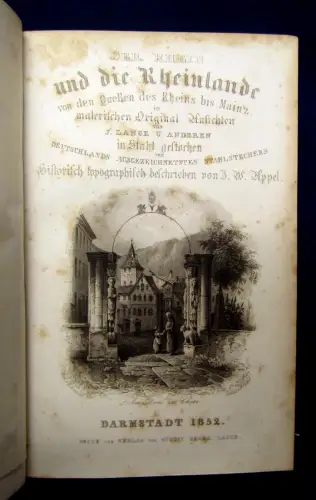 DER RHEIN
und die Rheinlande
von den Quellen des Rheins bis Mainz,
in
malerischen Original Ansichten
von
J. LANGE U. ANDEREN
in Stahl gestochen
von
DEUTSCHLANDS AUSGEZEICHNETSTEN STAHLSTECHERN
Historisch topographisch beschrieben von J. W. Appel
DARMSTADT 1852.
DRUCK UND VERLAG VON GUSTAV GEORG LANGE.